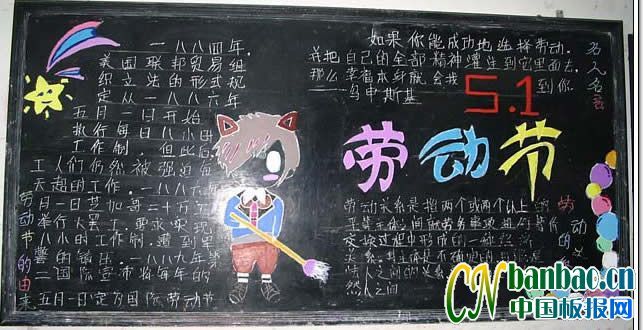 一八八四年,
美国联邦贸易组
织立法的形式规
定从一八八六年
五月一日开始
执行每日八小时
工作制 但此后
工人们仍然被强迫每
天超的工作.一八八六年
月一日芝加哥二十万工
举行大罢工,要求实现
八小时工作制.遭到
警的镇压.一八八九年第
二国际宣布将每年的
五月一日定为国际劳动节
劳动节的由来
如果你能成功地选择劳动,
并把自己的全部精神灌注到它里面去,
那么幸福本身就会找到你
——乌申斯基
名人名言
5.1
劳动节
劳动关系是指两个或两个以上
交换过程中形成的一种经济
关系.其主体是不确定的
法人之间的关系
然人之间
劳动的
CN banbao.cn
中国板报网